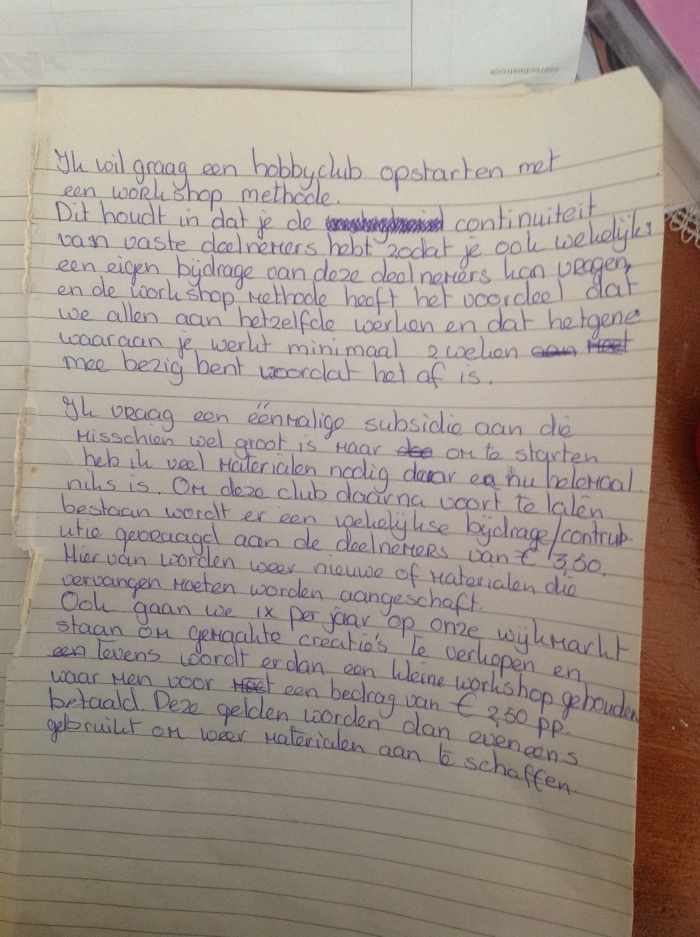 correctiestrook
Ik wil graag een hobbyclub opstarten met
een workshop methode.
Dit houdt in dat je de continuiteit
van vaste deelnemers hebt zodat je ook wekelijks
een eigen bijdrage van deze deelnemers kan vragen,
en de workshop methode heeft het voordeel dat
we allen aan hetzelfde werken en dat hetgene
waaraan je werkt minimaal 2 weken
mee bezig bent voordat het af is.
Ik vraag een éénmalige subsidie aan die
misschien wel groot is maar om te starten
heb ik veel materialen nodig daar er nu helemaal
niks is. Om deze club daarna voort te laten
bestaan wordt er een wekelijkse bijdrage/contrub-
utie gevraagd aan de deelnemers van € 3,50.
Hier van worden weer nieuwe of materialen die
vervangen moeten worden aangeschaft.
Ook gaan we 1x per jaar op onze wijkmarkt
staan om gemaakte creatie's te verkopen en
een tevens wordt er dan een kleine workshop gehouden
waar men voor een bedrag van € 2,50 pp.
betaald. Deze gelden worden dan eveneens
gebruikt om weer materialen aan te schaffen.